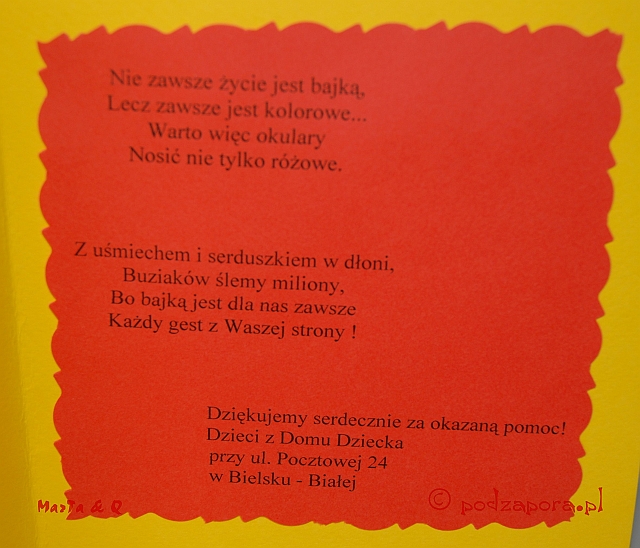 Nie zawsze życie jest bajką,
Lecz zawsze jest kolorowe...
Warto więc okulary
Nosić nie tylko różowe.
Z uśmiechem i serduszkiem w dłoni,
Buziaków ślemy miliony,
Bo bajką jest dla nas zawsze
Każdy gest z Waszej strony !
Dziękujemy serdecznie za okazaną pomoc!
Dzieci z Domu Dziecka
przy ul. Pocztowej 24
w Bielsku - Białej
MaRTa & Q
© podzapora.pl